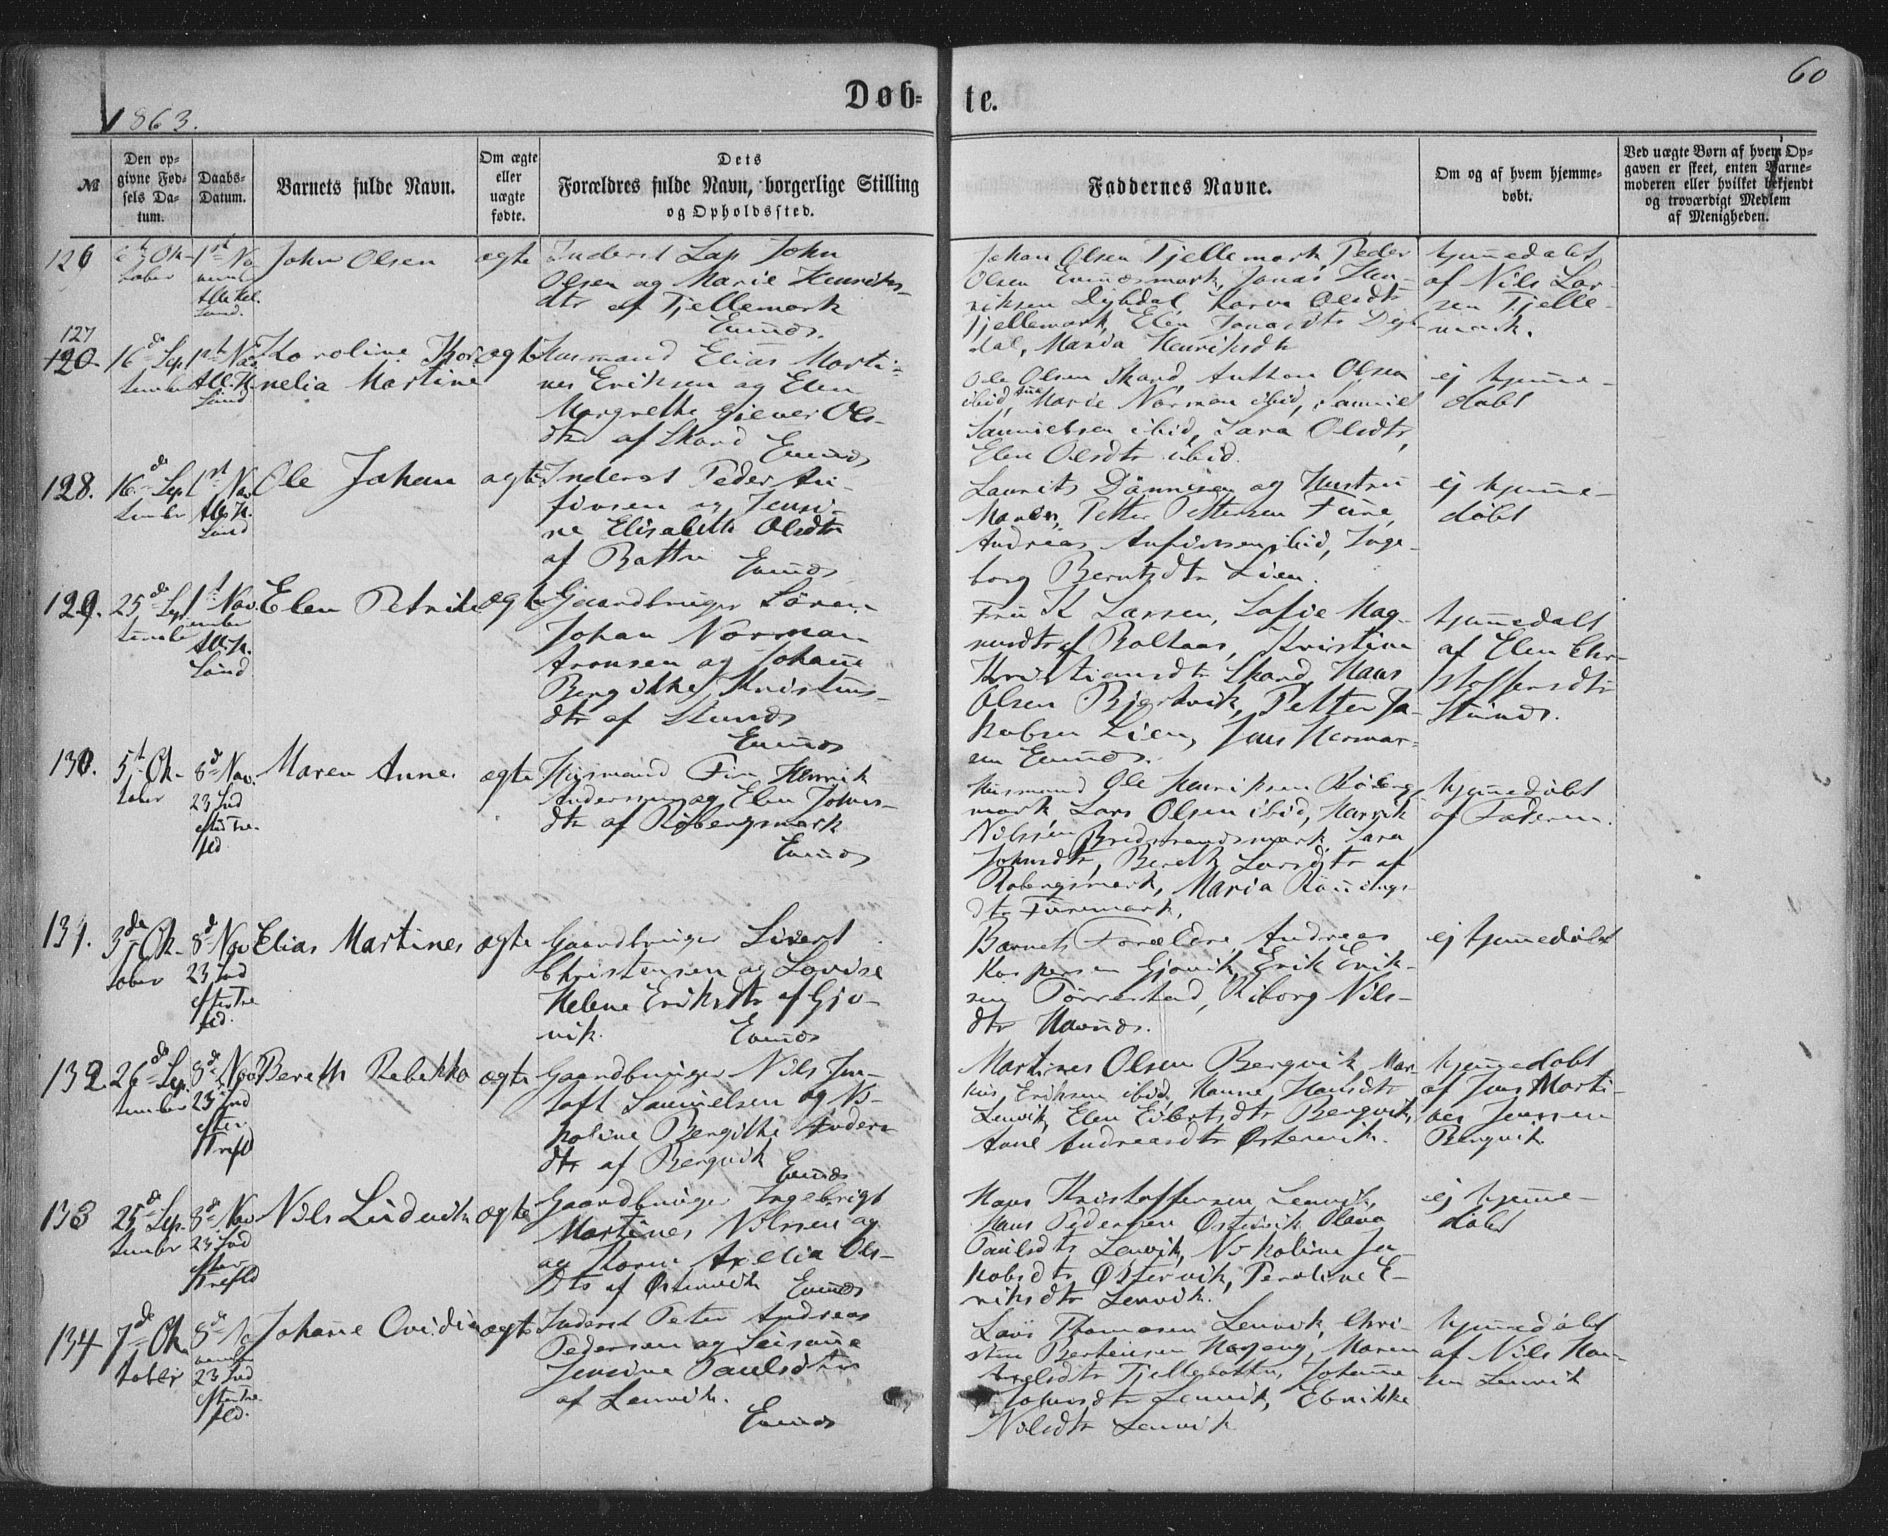 60
Døb= te.
1863.
№
Den op=
givne Fød=
sels Da=
tum.
Daabs=
Datum.
Barnets fulde Navn.
Om ægte
eller
uægte
fødte.
Dets
Forældres fulde Navn, borgerlige Stilling
og Opholdssted.
Faddernes Navne.
Om og af hvem hjemme=
døbt.
Ved uægte Børn af hvem Op=
gaven er skeet, enten Barne=
moderen eller hvilket bekjendt
og troværdigt Medlem
af Menigheden.
126
Ok-
tober
1st No
John Olsen
ægte
Inderst Lap John
Olsen og Marie Henriks-
dtr af Fjellemark
Evinds.
Johan Olsen Fjellemark, Peder
Olsen Evindsmark, Jonas Hen-
riksen Dybdal, Karen Olsdtr
Fjellemark, Elen Jonasdtr Dyb-
dal, Maria Henriksdtr
hjemmedøbt
af Nils Lar-
sen Fjelle-
mark.
127
120
16de Sep
tember
1st Nov
Karoline Kor
nelia Martine
ægte
Husmand Elias Marti-
nes Eriksen og Elen
Margrethe Gjæver Ols-
dtr af Skard
Evinds
Ole Olsen Skard, Anthon Olsen
ibid, Marie Norman ibid, Samuel
Samuelsen ibid, Sara Olsdtr,
Elen Olsdtr ibid.
ej hjemme-
døbt
128.
16de Sep
tember
1st Nov
Ole Johan
ægte
Inderst Peder An-
finsen og Jensi-
ne Elisabeth Olsdtr
af Botten
Evinds
Laurits Dønnisen og Hustru
Maren, Petter Pettersen
Andreas Anfinsen ibid, Inge-
borg Berntsdtr Lien.
ej hjemme-
døbt
129.
25de Sep
tember
1st Nov
Elen Petrike
ægte
Gaardbruger Søren
Johan Norman
Aronsen og Johanne
Bergithe Kristens-
dtr af
Evinds
Fru K Larsen, Sofie Mag-
nusdtr af Boltaas, Kristine
Kristiansdtr Skard, Hans
Olsen Bjerkvik, Petter Ja-
kobsen Lien, Jens
Evinds.
hjemmedøbt
af Elen Chr-
stoffersdtr
130.
5t Ok-
tober
8d Nov
23 Ind
efter Tre-
fld
Maren Anne
ægte
Husmand Fin Henrik
Andersen og Elen Johns-
dtr af Robergsmark
Evinds
Husmand Ole Henriksen Roberg
mark, Lars Olsen ibid, Henrik
Nilssen Bredstrandsmark, Sara
Johnsdtr, Bereth Larsdtr af
Robergsmark, Maria
dtr
hjemmedøbt
af Faderen.
131.
3die Ok-
tober
8d Nov
23 Ind
efter Tre-
fld.
Elias Martines
ægte
Gaardbruger Sivert
Christensen og Lovise
Helene Eriksdtr af Gjø-
vik.
Evinds
Barnets Forældre, Andreas
Kaspersen Gjøvik, Erik Erik-
sen Tørrestad, Riborg Nils-
dtr
ej hjemmedøbt
132
26de Sep
tember
8d Nov
23 Ind
efter
Trefld
Bereth Rebekka
ægte
Gaardbruger Nils Jen-
toft Samuelsen og Ni-
koline Bergithe Anders
dtr af Bergvik
Evinds
Martines Olsen Bergvik, Mar-
kus Eriksen ibid, Hanne Hansdtr
Lenvik, Elen Eibertsdtr Bergvik,
Anne Andreasdtr Østervik.
hjemmedøbt
af Jens Marti-
nes Jenssen
Bergvik
133
25de Sep
tember
8d Nov
23 Ind
efter
Trefld
Nils Ludvik
ægte
Gaardbruger Ingebrigt
Martines Nilssen og
og Karen Axelia Ols-
dtr af Østervik
Evinds
Hans Kristoffersen Lenvik,
Hans Pedersen Østervik, Olava
Paulsdtr Lenvik, Nikoline Ja-
kobsdtr Østervik, Peroline E-
riksdtr Lenvik.
ej hjemme-
døbt
134
7de Ok
tober
8d No
vember
23 Ind
efter Tre-
fld.
Johanne Ovidia
ægte
Inderst Peter Andreas
Pedersen og Susanne
Jensine Paulsdtr
af Lenvik.
Evinds
Lars Thomasen Lenvik, Chri-
sten Berteusen Hagang, Maren
Axelsdtr Fjellebotten, Johanne
Johnsdtr Lenvik, Ebrikke
Nilsdtr Lenvik
hjemmedøbt
af Nils Han-
sen Lenvik